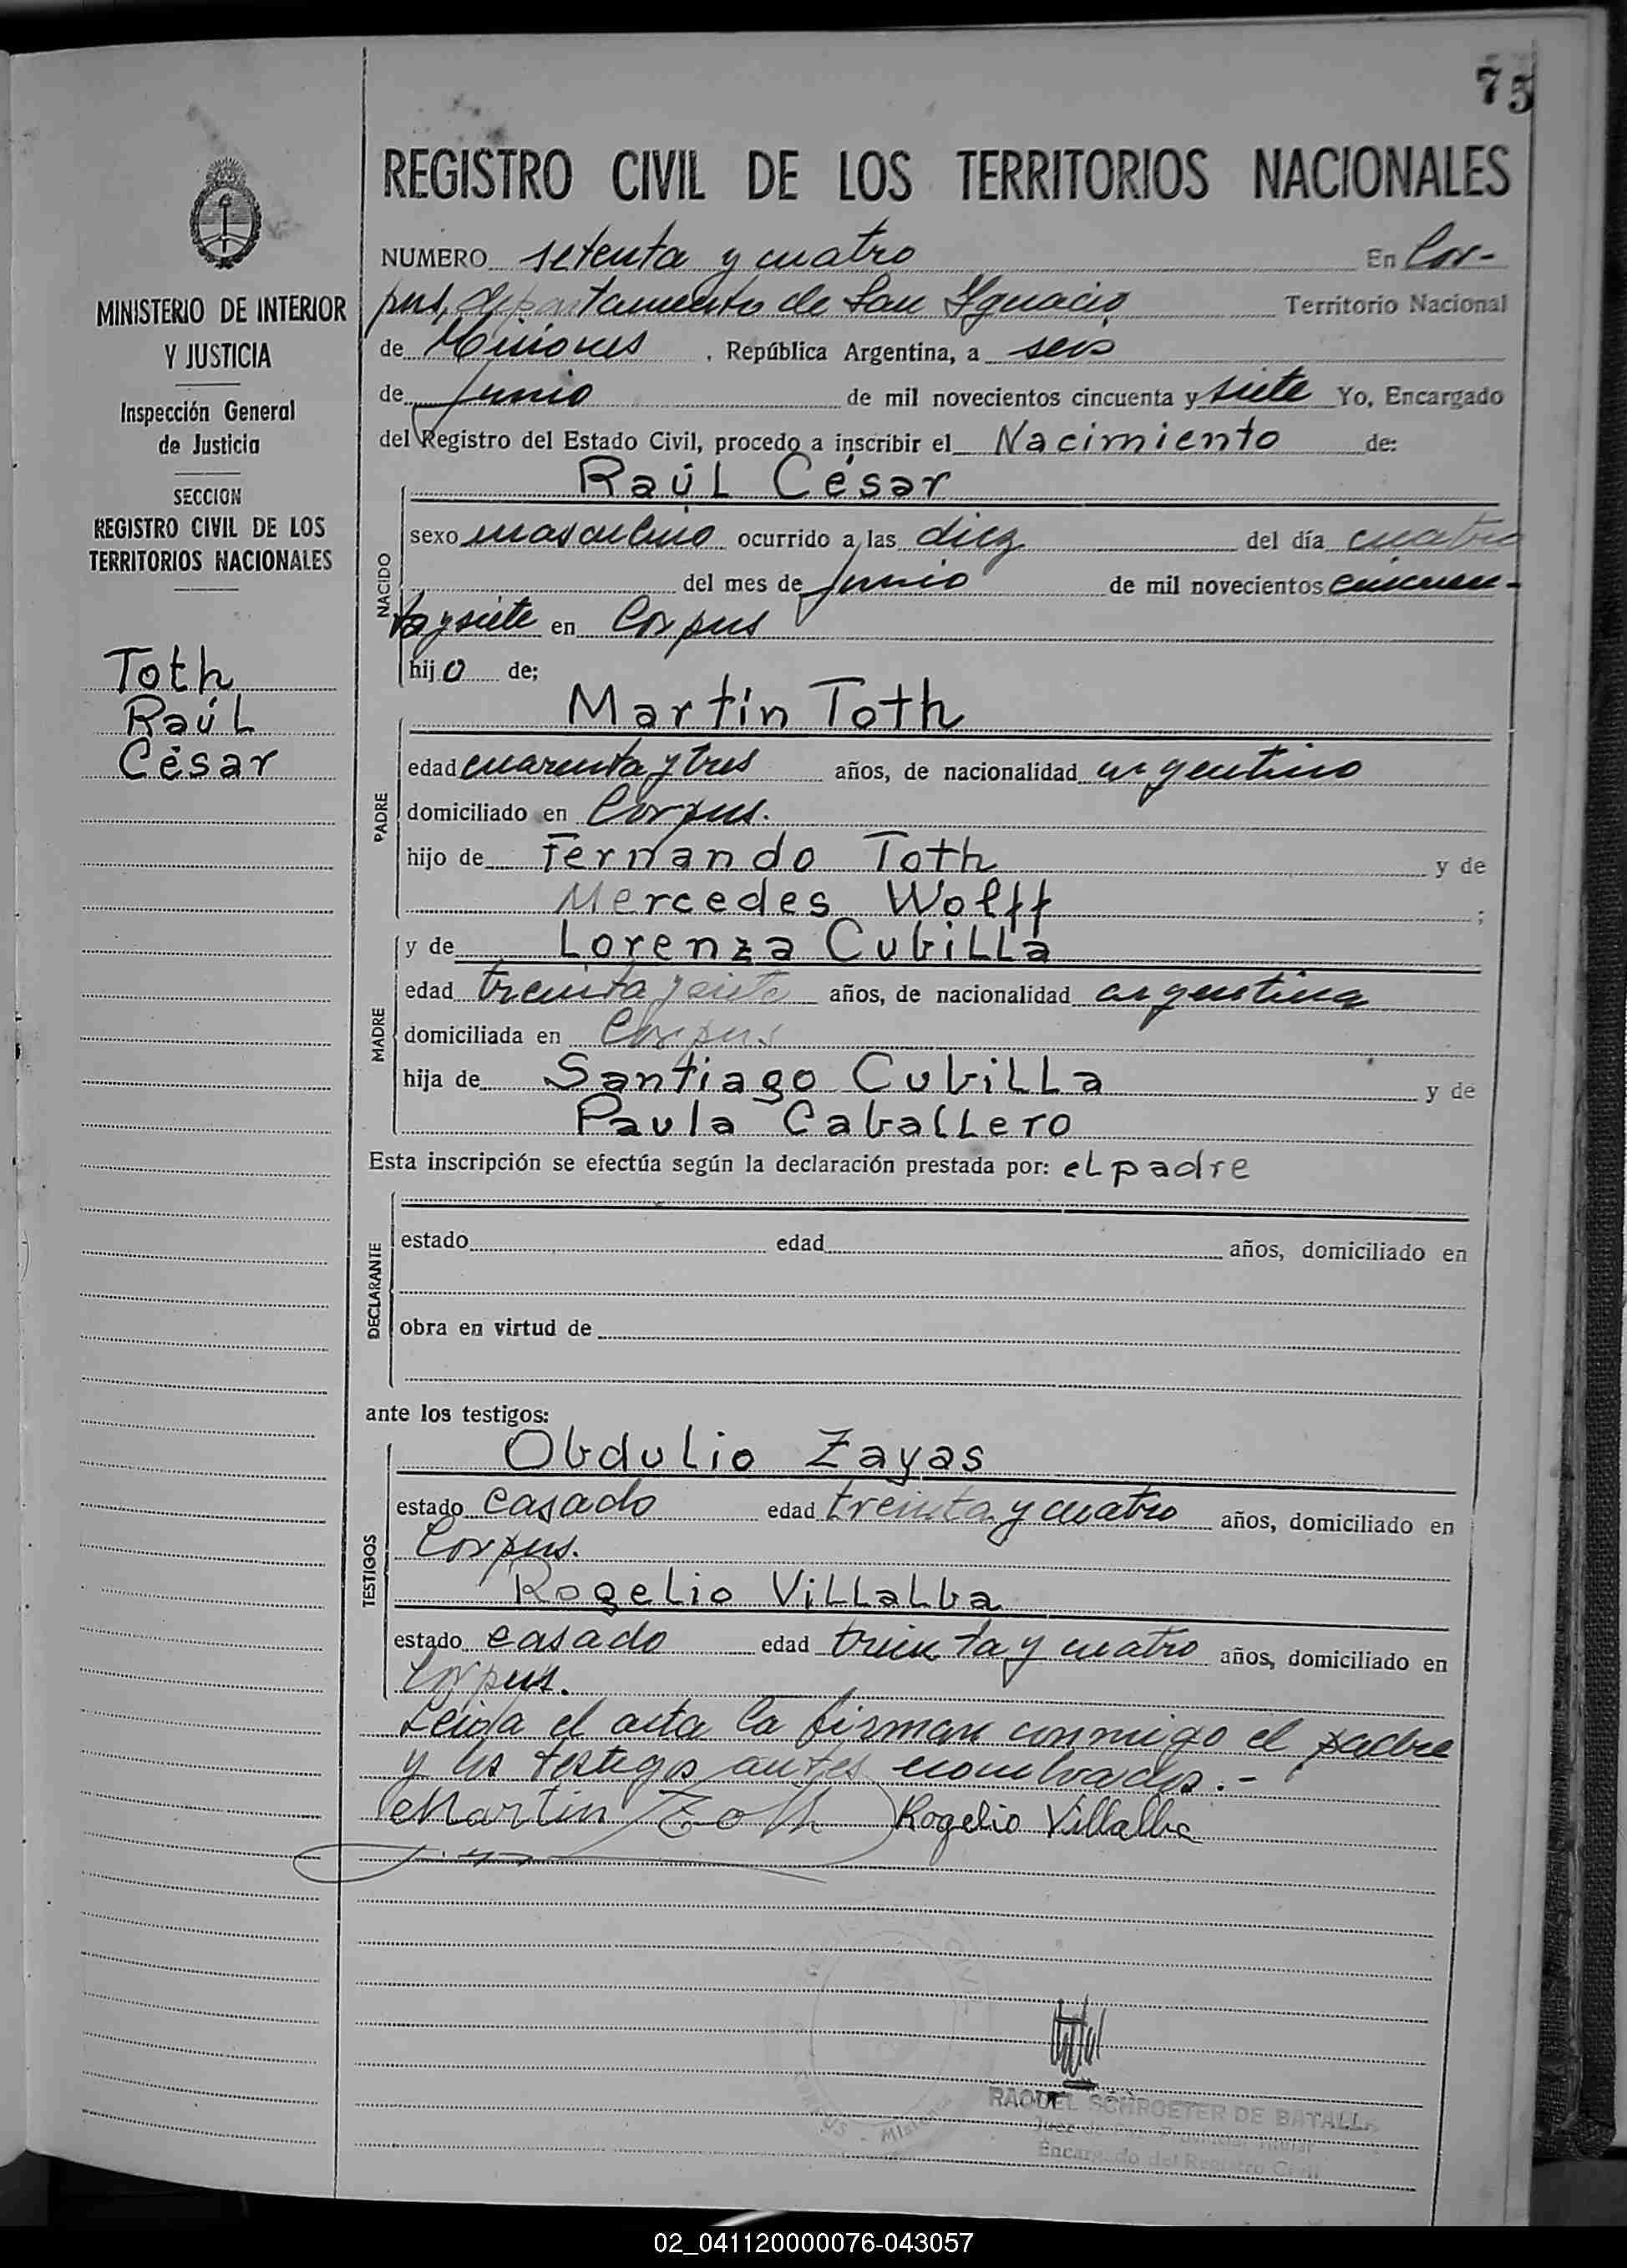 75
REGISTRO CIVIL DE LOS TERRITORIOS NACIONALES
MINISTERIO DE INTERIOR
Y JUSTICIA
Inspección General
de Justicia
SECCION
REGISTRO CIVIL DE LOS
TERRITORIOS NACIONALES
Toth
Raúl
César
NUMERO setenta y cuatro En Cor-
pus, departamento de San Ygnacio Territorio Nacional
de Misiones, República Argentina, a seis
de junio de mil novecientos cincuenta y siete Yo, Encargado
del Registro del Estado Civil, procedo a inscribir el Nacimiento de:
Raúl César
NACIDO
sexo masculino ocurrido a las diez del día cuatro
del mes de junio de mil novecientos cincuen-
ta y siete en Corpus
hijo de;
Martín Toth
PADRE
edad cuarenta y tres años, de nacionalidad argentino
domiciliado en Corpus.
hijo de Fernando Toth y de
Mercedes Wolff;
y de Lorenza Cubilla
MADRE
edad treinta y siete años, de nacionalidad argentina
domiciliada en Corpus
hija de Santiago Cubilla y de
Paula Caballero
Esta inscripción se efectúa según la declaración prestada por: el padre
DECLARANTE
estado edad años, domiciliado en
obra en virtud de
ante los testigos:
TESTIGOS
Obdulio Zayas
estado casado edad treinta y cuatro años, domiciliado en
Corpus.
Rogelio Villalba
estado casado edad treinta y cuatro años, domiciliado en
Corpus.
Leida el acta la firman conmigo el padre
y los testigos antes nombrados.-
Martin Toth Rogelio Villalba
RAQUEL SCHROETER DE BATALLA
Juez de Paz Provincial Titular
Encargado del Registro Civil
02_041120000076-043057